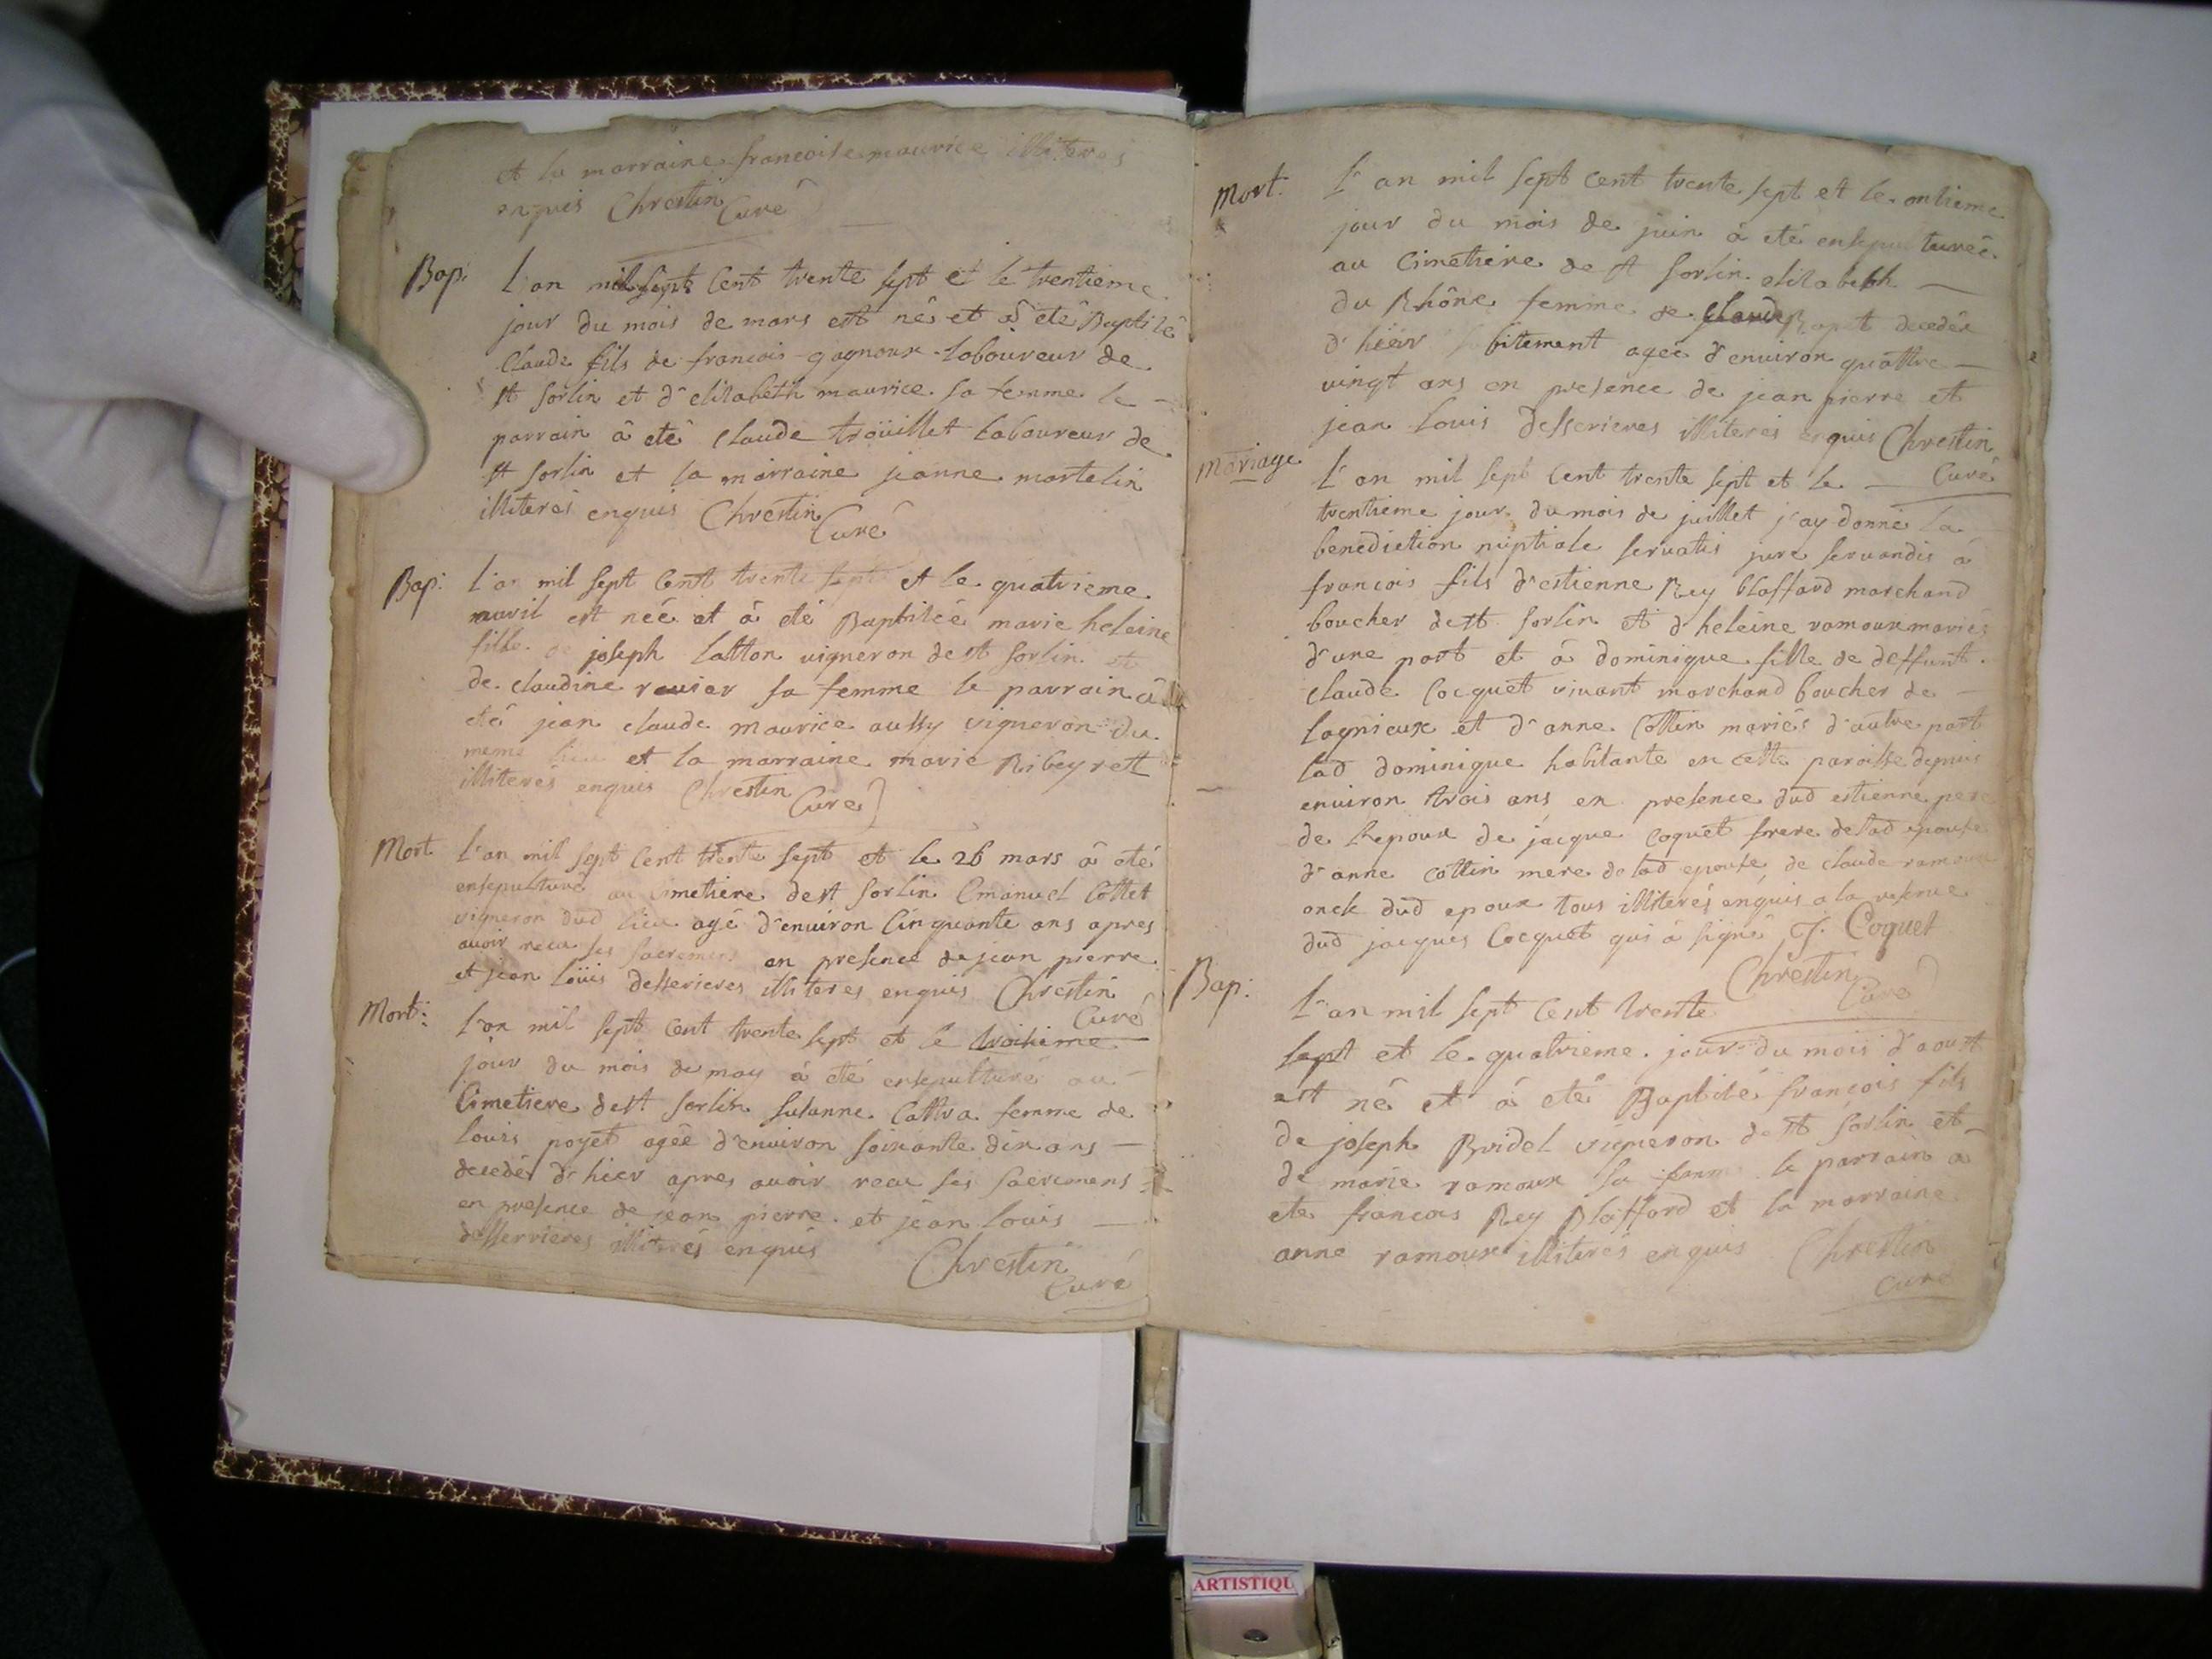 et la marraine francoise maurice illiteres
enquis Chrestin Curé
Bap: L'an mil sept cent trente sept et le trentieme
jour du mois de mars est né et à eté Baptisé
Claude fils de francois gagnoux laboureur de
st sorlin et d'elisabeth maurice sa femme le
parrain à eté Claude troüillet laboureur de
st sorlin et la marraine jeanne martelin
illiterés enquis Chrestin
Curé
Bap: L'an mil sept cent trente sept et le quatrieme
avril est neé et à eté Baptiseé marie heleine
fille de joseph latton vigneron de st sorlin et
de claudine ravier sa femme le parrain à
eté jean claude maurice aussy vigneron du
meme lieu et la marraine marie Ribeyrett
illiterés enquis Chrestin
Curé
Mort L'an mil sept cent trente sept et le 26 mars à eté
ensepulturé au Cimetiere de st sorlin Emanuel Cottet
vigneron dud lieu agé d'environ Cinquante ans apres
avoir receu ses sacremens en presence de jean pierre
et jean loüis desserieres illiteres enquis Chrestin
Curé
Mort: L'an mil sept cent trente sept et le troisieme
jour du mois de may à eté ensepulturé au
Cimetiere de st sorlin susanne Cattra femme de
louis poyet ageé d'environ soixante dix ans
decedeé d'hier apres avoir receu ses sacremens
en presence de jean pierre et jean louis
desserrieres illiterés enquis Chrestin
Curé
Mort. L'an mil sept cent trente sept et le onsieme
jour du mois de juin à eté ensepultureé
au Cimetiere de st sorlin elisabeth
du Rhône femme de Claude Rapet decedée
d'hier subitement ageé d'environ quattre
vingt ans en presence de jean pierre et
jean louis desserieres illiterés enquis Chrestin
Curé
Mariage L'an mil sept cent trente sept et le
trentieme jour du mois de juillet j'ay donné la
benediction nuptiale servatis jure servandis à
francois fils d'estienne Rey Blaffard marchand
boucher de st sorlin et d'heleine ramoux mariés
d'une part et à dominique fille de deffunt
claude Cocquet vivant marchand boucher de
lagnieux et d'anne Cottin mariés d'autre part
lad dominique habitante en cette paroisse depuis
environ trois ans en presence dud estienne pere
de l'epoux de jacque Coquet frere de lad epouse
d'anne Cottin mere de lad epouse de claude ramoux
oncle dud epoux tous illiterés enquis a la reserve
dud jacques Cocquet qui à signé J: Coquet
Chrestin
Curé
Bap: L'an mil sept cent trente
sept et le quatrieme jour du mois d'aoust
est né et à eté Baptisé françois fils
de joseph Bridel vigneron de st sorlin et
de marie ramoux sa femme le parrain a
ete francois Rey Blaffard et la marraine
anne ramoux illiterés enquis Chrestin
Curé
ARTISTIQU